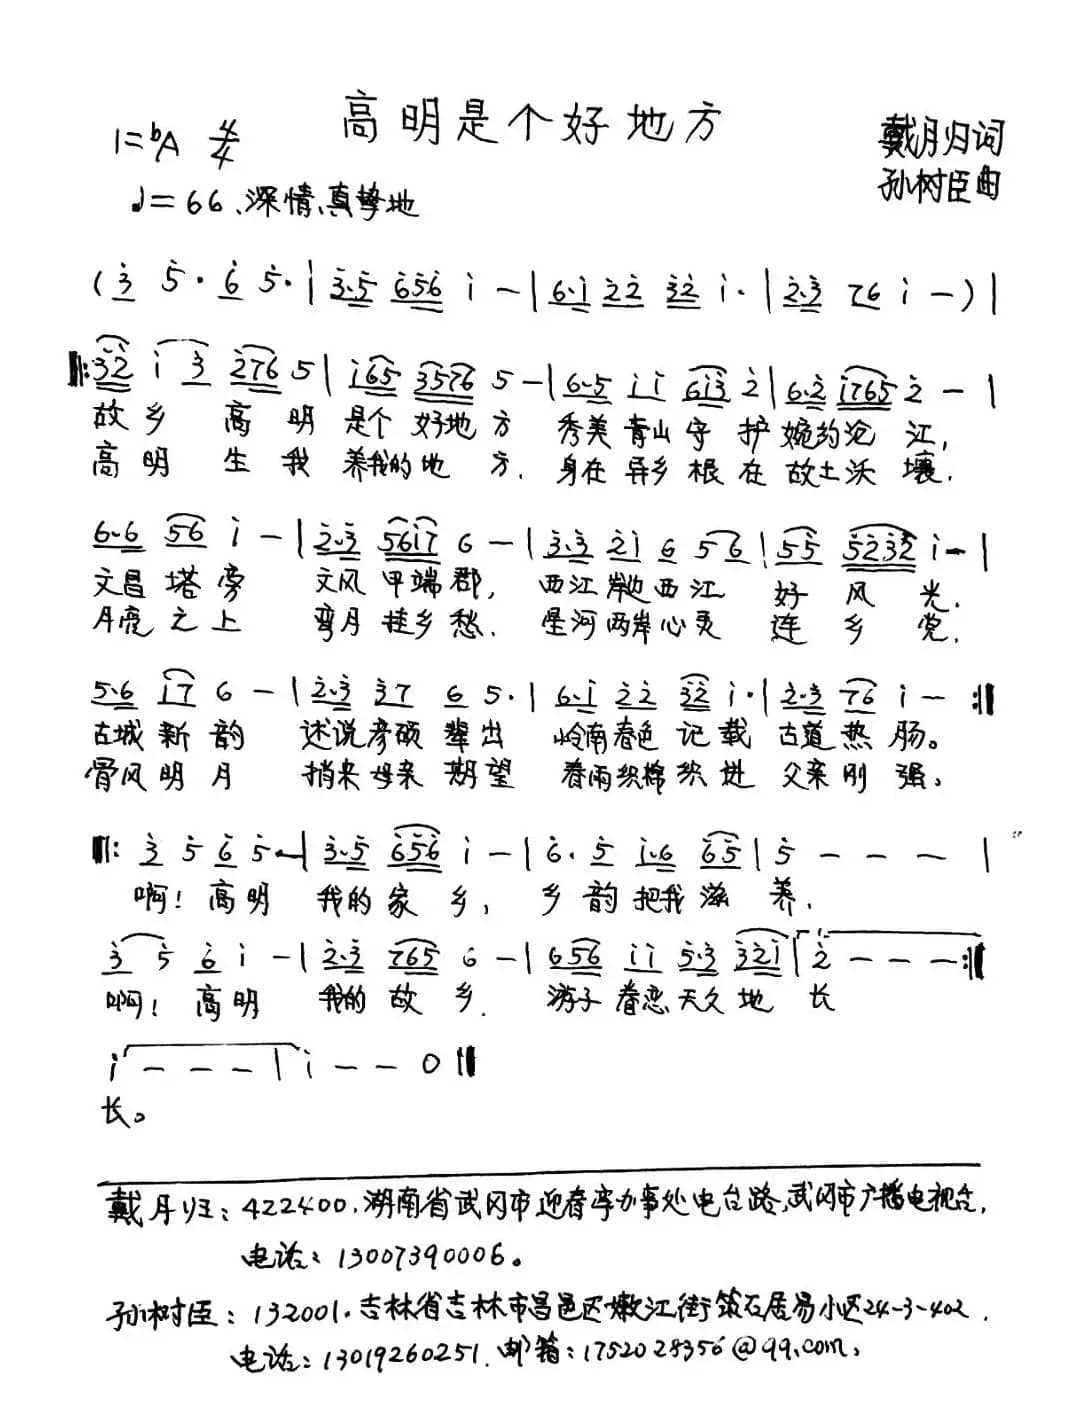 高明是个好地方
1=♭A 4/4
戴月归词
孙树臣曲
♩=66、深情、真挚地
(3̇ 5̇· 6̇ 5̇·|3̇·5̇ 6̇5̇6̇ i -|6·i 2̇2̇ 3̇2̇ i·|2̇·3̇ 76 i -)|
‖:3̇2̇ i 3̇ 2̇76 5|i65 3576 5 -|6·5 ii 6i3̇ 2̇|6·2̇ i765 2̇ -|
故乡 高明 是个 好地方 秀美青山守护婉约沧江,
高明 生我 养我的地方. 身在异乡根在故土沃壤.
6·6 56 i -|2̇·3̇ 56i7 6 -|3̇·3̇ 2̇i 6 56|5̇5̇ 5̇2̇3̇2̇ i -|
文昌塔旁 文风甲端郡, 西江岸边西江 好风光.
月亮之上 弯月挂乡愁. 星河两岸心灵 连乡党.
5·6 i7 6 -|2̇·3̇ 3̇7 6 5·|6·i 2̇2̇ 3̇2̇ i·|2̇·3̇ 76 i - :‖
古城新韵 述说彦硕辈出 岭南春色记载 古道热肠。
骨风明月 捎来母亲期望 春雨织棉织进 父亲刚强。
‖: 3̇ 5̇ 6̇ 5̇ -|3̇·5̇ 6̇5̇6̇ i -|6̇· 5̇ i·6 6̇5̇|5̇ - - - |
啊! 高明 我的家乡, 乡韵把我滋养.
3̇ 5̇ 6̇ i -|2̇·3̇ 765 6 -|656 ii 5·3̇ 3̇2̇i|2̇ - - - :‖
啊! 高明 我的故乡. 游子眷恋天久地 长
i - - - | i - - 0 ‖
长。
戴月归: 422400. 湖南省武冈市迎春亭办事处电台路,武冈市广播电视台.
电话: 13007390006。
孙树臣: 132001. 吉林省吉林市昌邑区嫩江街筑石居易小区24-3-402.
电话: 13019260251. 邮箱: 1752028356@qq.com.